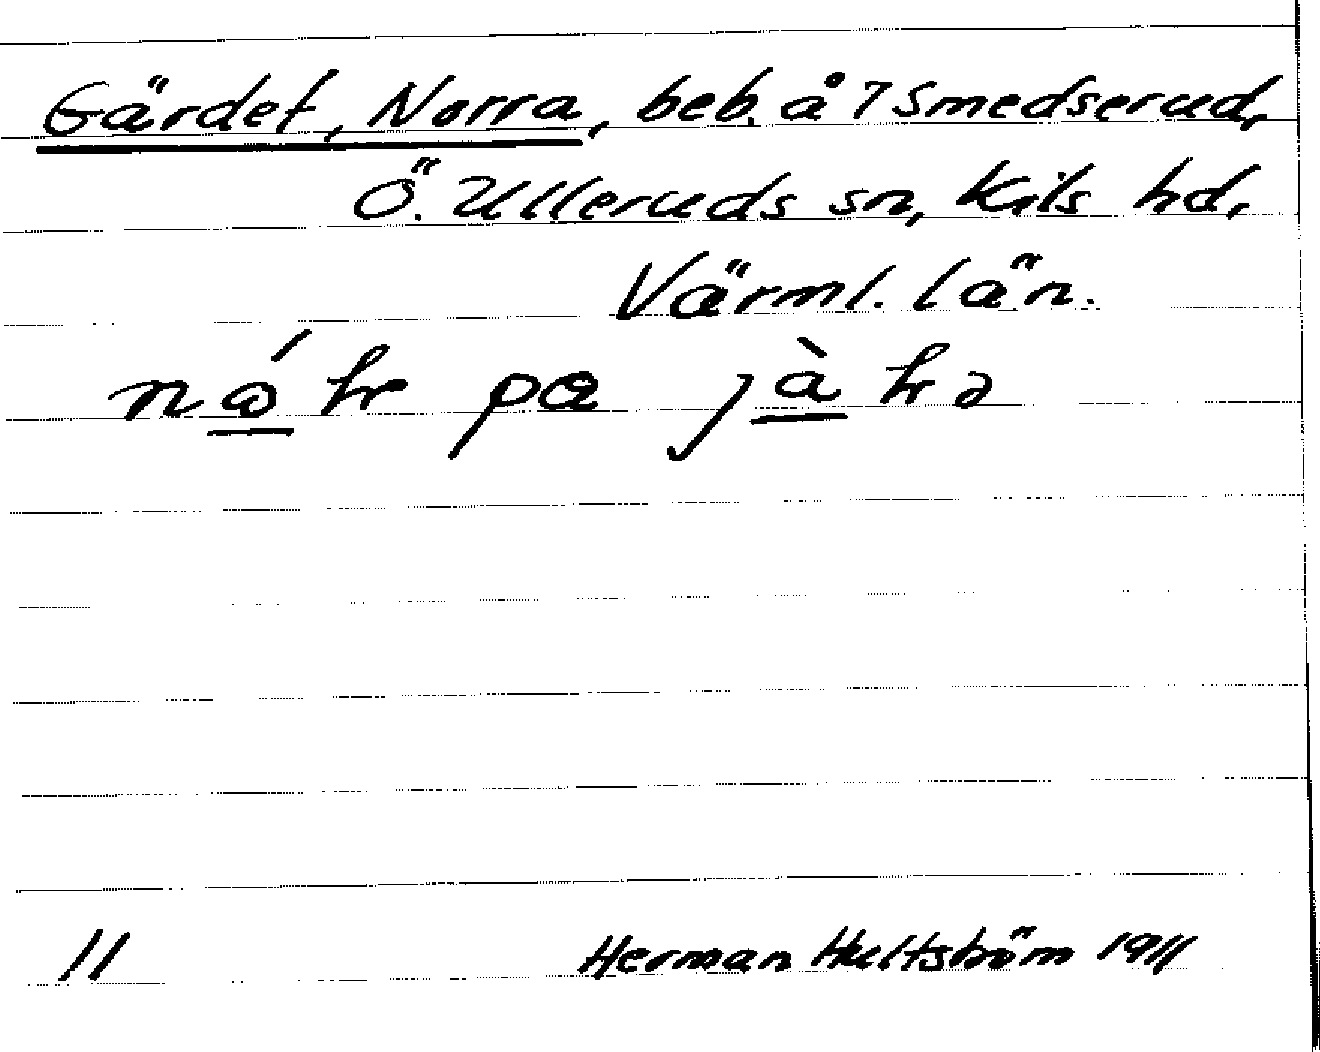 Gärdet, Norra, beb. å 7 Smedserud,
Ö. Ulleruds sn, Kils hd,
Värml. län.
pa
11
Herman Hultström 1911